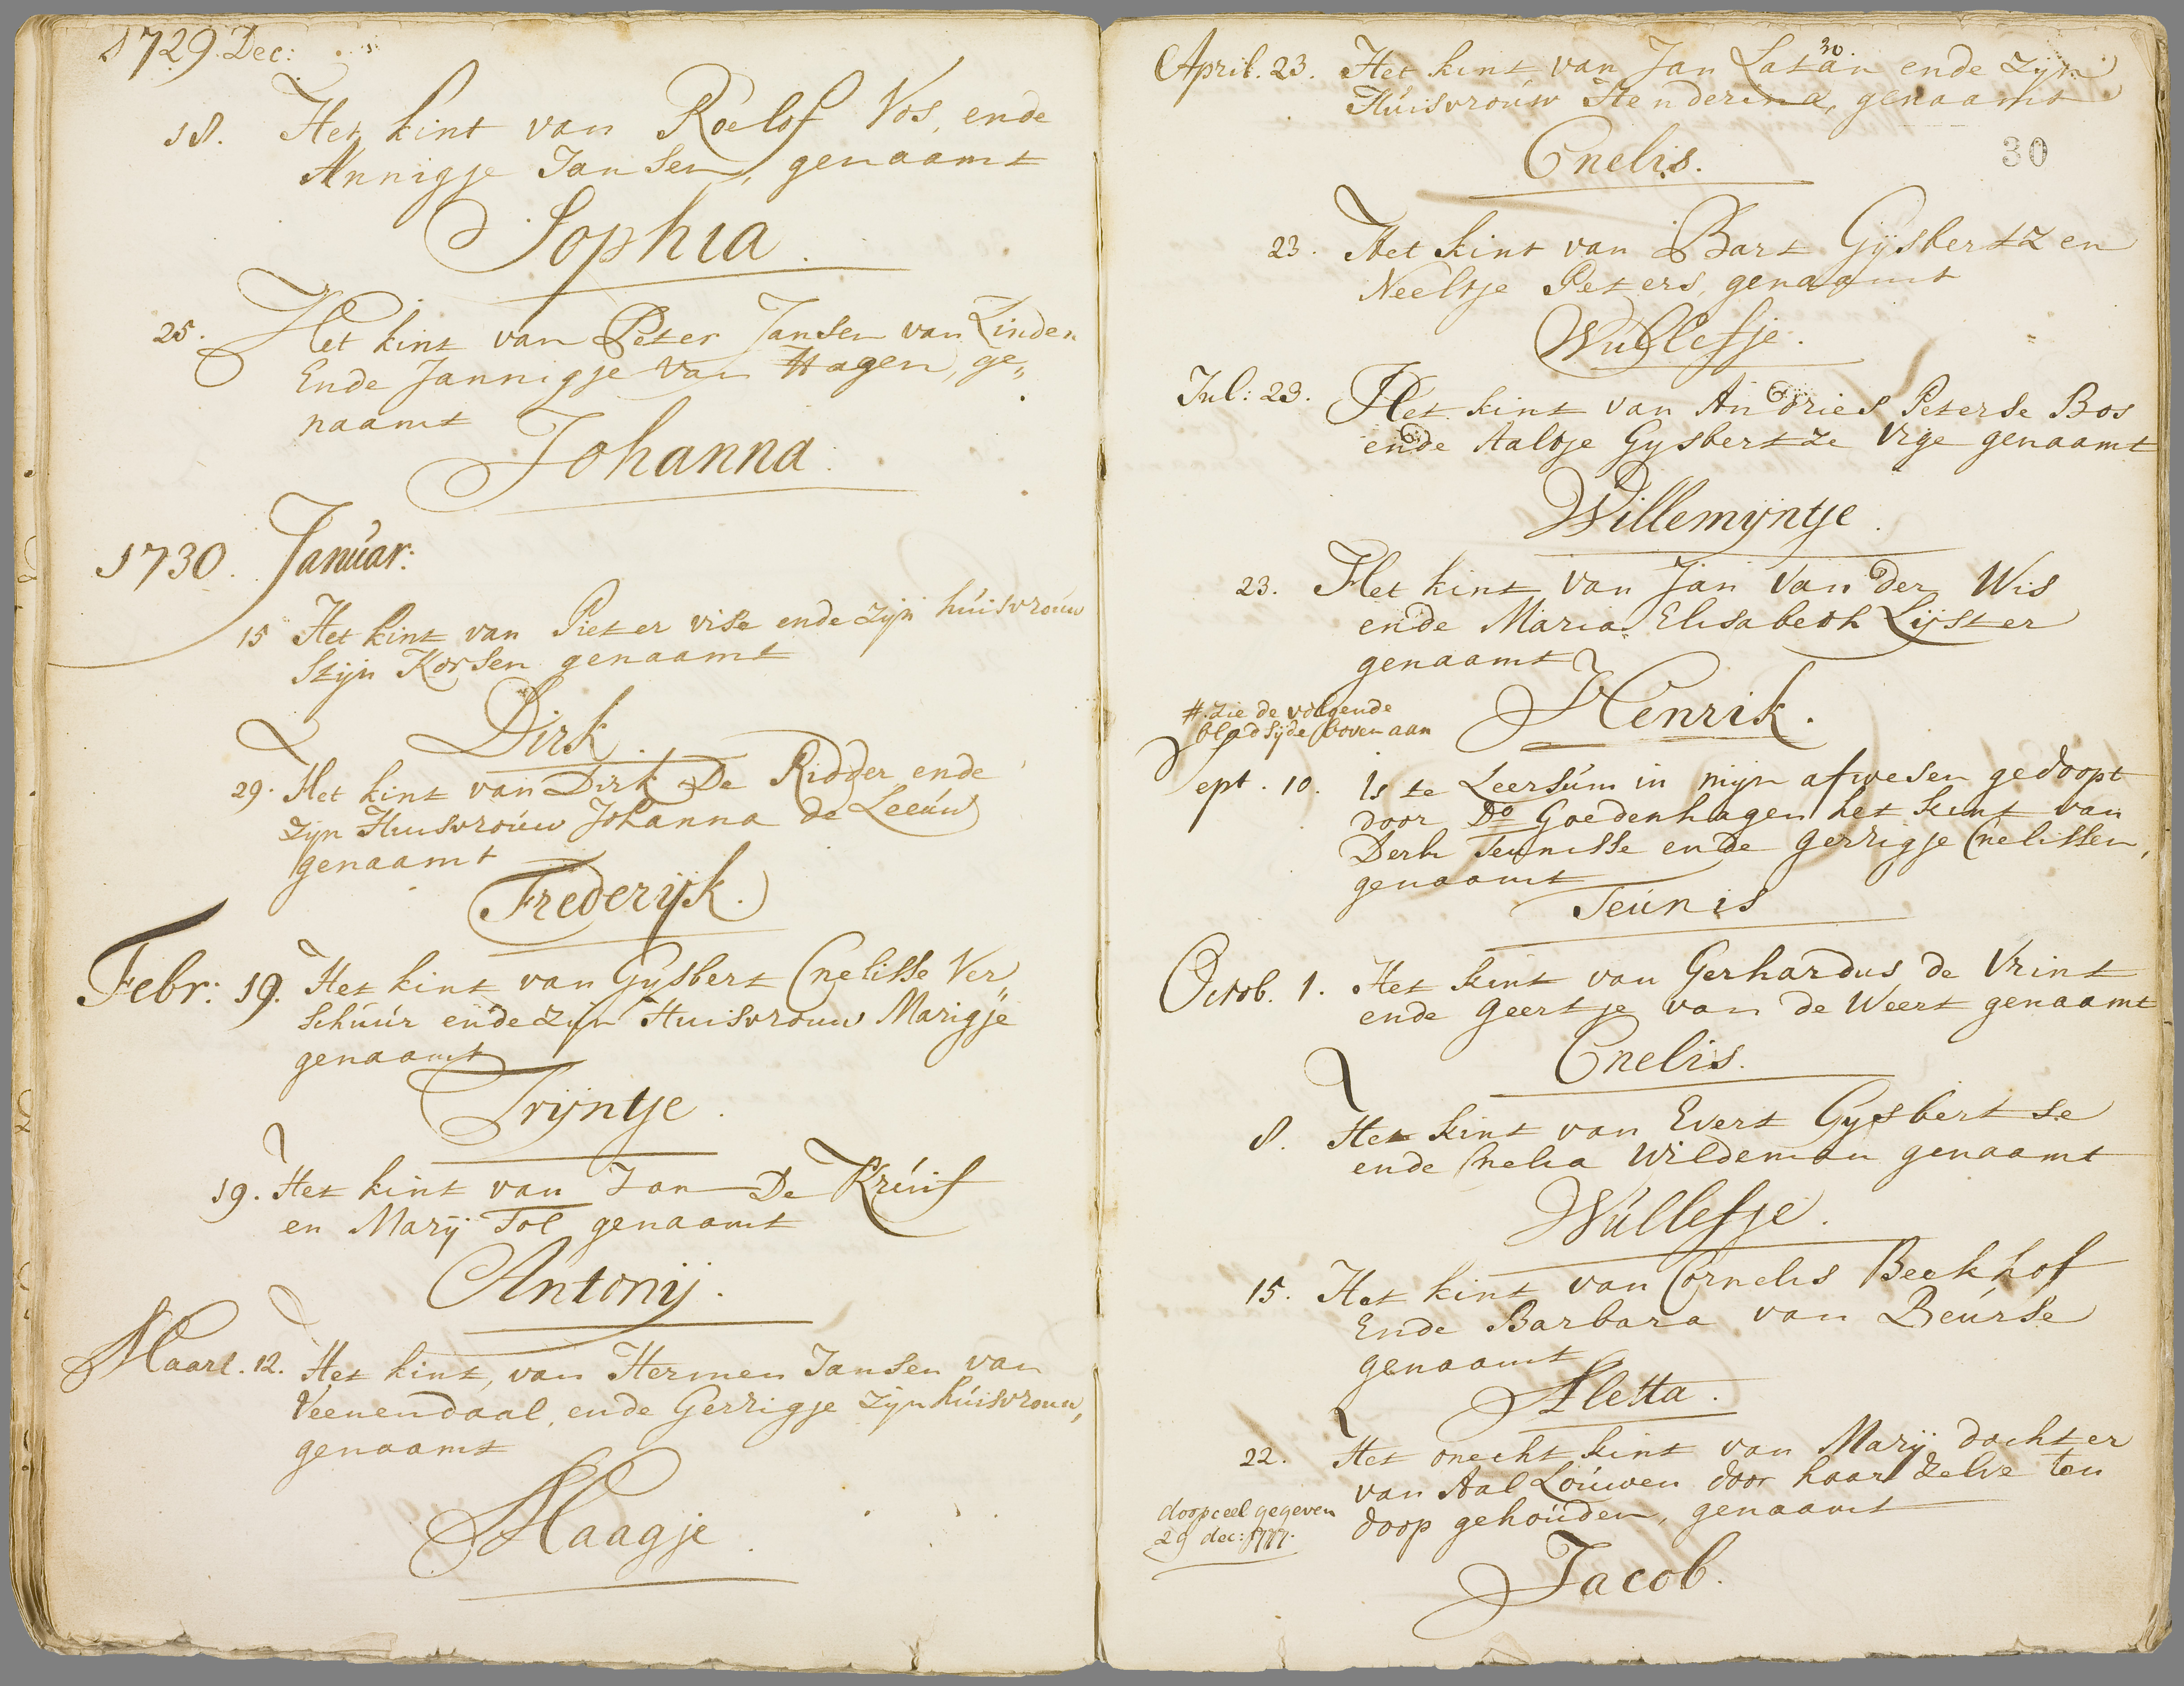 1729. Dec:
18. Het kint van Roelof Vos, ende
Annigje Jansen, genaamt
Sophia.
25. Het kint van Peter Jansen van Linden
Ende Jannigje van Hagen, ge„
naamt
Johanna.
1730. Januar:
15 Het kint van Pieter vise ende zijn huisvrouw
Stijn Korsen genaamt
Dirk.
29. Het kint van Dirk De Ridder ende
zijn Huisvrouw Johanna de Leeuw
genaamt
Frederijk.
Febr: 19. Het kint van Gysbert Cnelisse Ver„
schuur ende zijn Huisvrouw Marigje
genaamt
Trijntje.
19. Het kint van Jan De Kruif
en Marij Tol genaamt
Antonij.
Maart. 12. Het kint, van Hermen Jansen van
Veenendaal, ende Gerrigje zijn huisvrouw,
genaamt
Maagje.
30.
April. 23. Het kint van Jan Latan ende zijn
Huisvrouw Henderina, genaamt
Cnelis.
30
23. Het kint van Bart Gijsbertz en
Neeltje Peters, genaamt
Wullefje.
Jul: 23. Het kint van Andries Peterse Bos
ende Aaltje Gysbertze Vige genaamt
Willemijntje.
23. Het kint van Jan van der Wis
ende Maria Elisabeth Lijster
genaamt
Henrik.
# zie de volgende
bladsijde boven aan
Sept. 10. Is te Leersum in mijn afwesen gedoopt
door Do Goedenhagen het kint van
Derk Teunisse ende Gerrigje Cnelissen,
genaamt
Teunis
Octob. 1. Het kint van Gerhardus de Vrint
ende Geertje van de Weert genaamt
Cnelis.
8. Het kint van Evert Gysbertse
ende Cnelia Wildeman genaamt
Wullefje.
15. Het kint van Cornelis Beekhof
Ende Barbara van Beurse
genaamt
Aletta.
22. Het onecht kint van Marij dochter
van Aal Louwen door haar zelve ten
doop gehouden, genaamt
doopceel gegeven
29 dec: 1777.
Jacob.